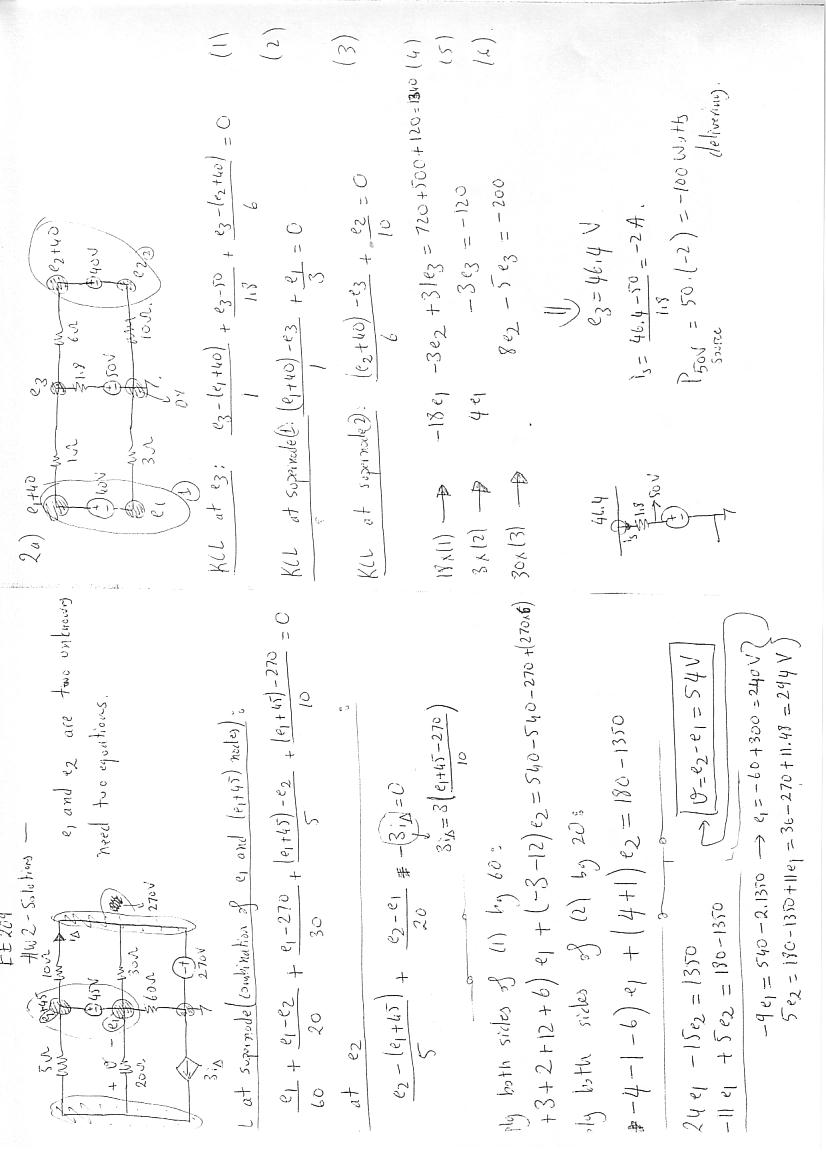 EE204
HW2 - Solutions -
5Ω
e1+45
10Ω
iΔ
+ v -
45V
e1
30Ω
270V
20Ω
60Ω
3iΔ
270V
e1 and e2 are two unknowns
need two equations.
L at supernode (combination of e1 and (e1+45) nodes):
e1/60 + (e1-e2)/20 + (e1-270)/30 + ((e1+45)-e2)/5 + ((e1+45)-270)/10 = 0
at e2 :
(e2-(e1+45))/5 + (e2-e1)/20 - 3iΔ = 0
3iΔ = 3((e1+45-270)/10)
ply both sides of (1) by 60:
+3+2+12+6) e1 + (-3-12) e2 = 540-540-270+(270x6)
ply both sides of (2) by 20:
-4-1-6) e1 + (4+1) e2 = 180-1350
24e1 - 15e2 = 1350
-11e1 + 5e2 = 180-1350
v = e2-e1 = 54V
-9e1 = 540-2.1350 → e1 = -60+300 = 240V
5e2 = 180-1350+11e1 = 36-270+11.48 = 294V
2a)
e1+40
1Ω
e3
6Ω
e2+40
40V
1.8
50V
40V
e1
3Ω
0V
10Ω
e2
1
2
KCL at e3: (e3-(e1+40))/1 + (e3-50)/1.8 + (e3-(e2+40))/6 = 0 (1)
KCL at supernode 1: ((e1+40)-e3)/1 + e1/3 = 0 (2)
KCL at supernode 2: ((e2+40)-e3)/6 + e2/10 = 0 (3)
18x(1) → -18e1 - 3e2 + 31e3 = 720+500+120 = 1340 (4)
3x(2) → 4e1 - 3e3 = -120 (5)
30x(3) → 8e2 - 5e3 = -200 (6).
⇓
e3 = 46.4 V
46.4
is
1.8
50V
is = (46.4-50)/1.8 = -2 A.
P50V source = 50.(-2) = -100 Watts
delivering.